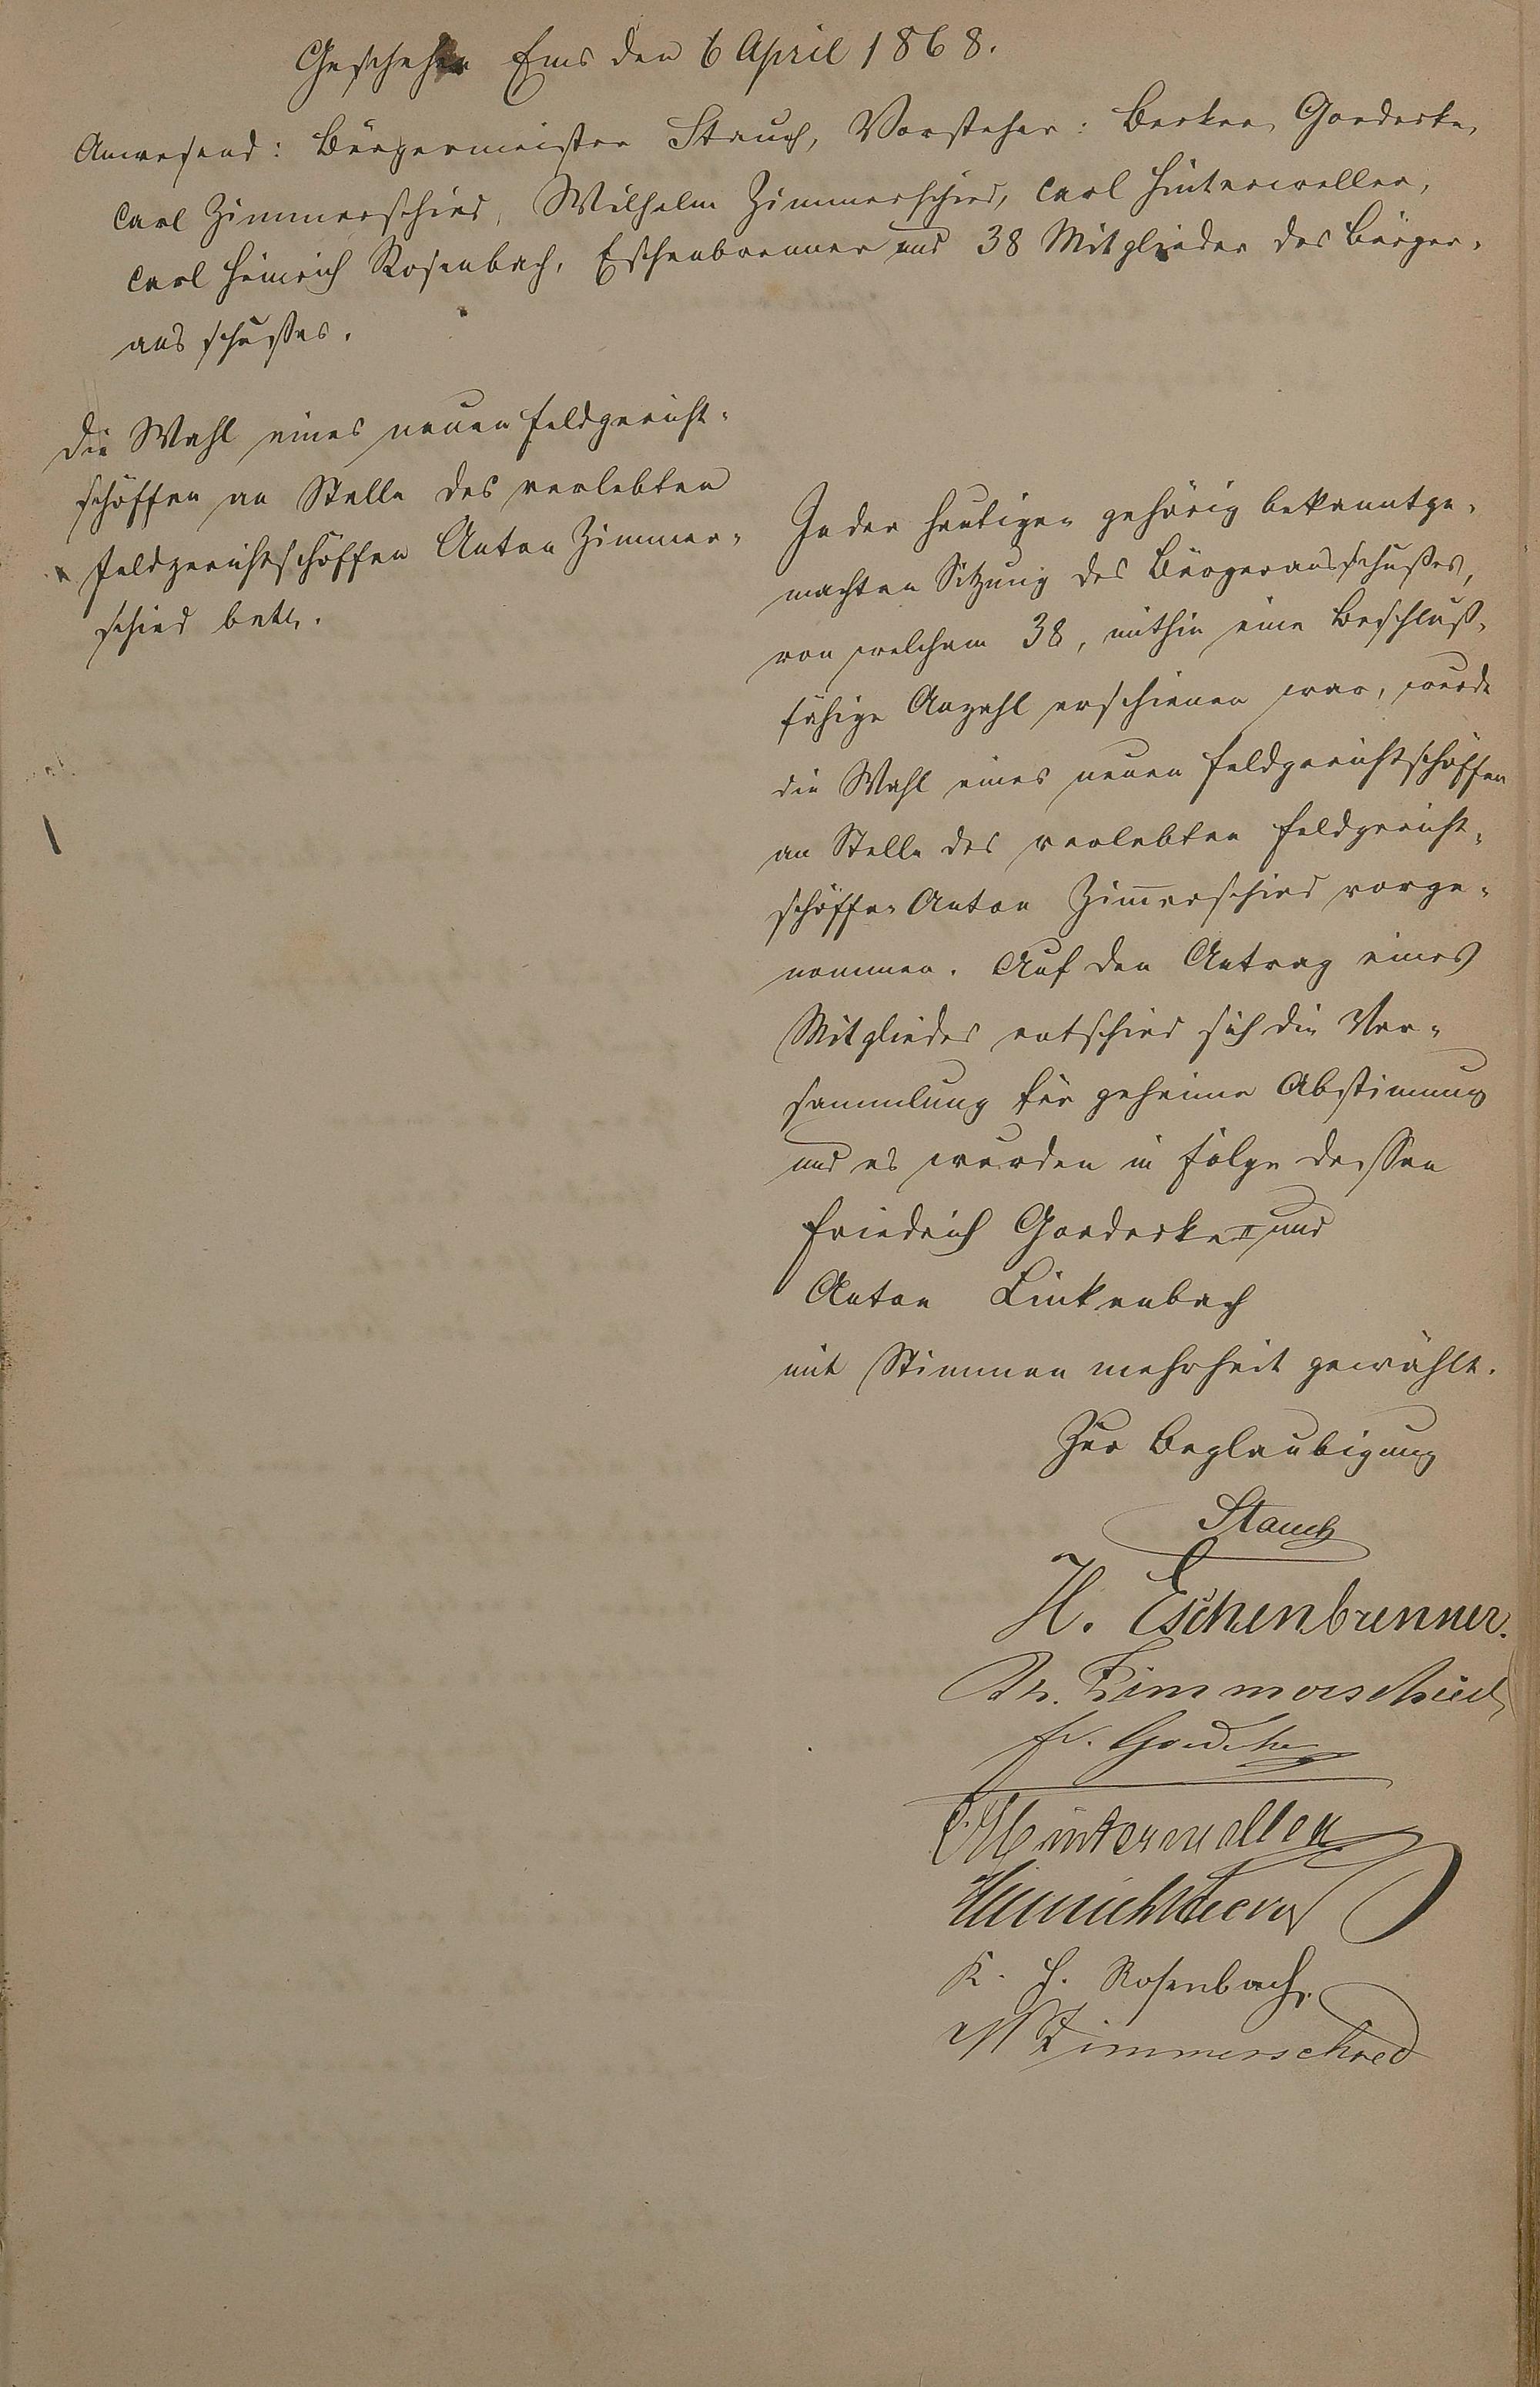 Geschehen Ems den 6 April 1868.
Anwesend: Bürgermeister Stauch, Vorsteher: Becker, Goedecke,
Carl Zimmerschied, Wilhelm Zimmerschied, Carl Hinterweller,
Carl Heinrich Rosenbach, Eschenbrenner und 38 Mitglieder des Bürger-
ausschußes.
Die Wahl eines neuen Feldgericht-
schöffen an Stelle des verlebten
Feldgerichtschöffen Anton Zimmer-
schied betr.
In der heutigen gehörig bekanntge-
machten Sitzung des Bürgerausschußes,
von welchem 38, mithin eine Beschluß-
fähige Anzahl erschienen war, wurde
die Wahl eines neuen Feldgerichtschöffen
an Stelle des verlebten Feldgericht-
schöffen Anton Zim̅erschied vorge-
nommen. Auf den Antrag eines
Mitgliedes entschied sich die Ver-
sammlung für geheime Abstimmung
und es wurden in Folge dessen
Friedrich Goedecke II und
Anton Linkenbach
mit Stimmen mehrheit gewählt.
Zur Beglaubigung
Stauch
H. Eschenbrenner.
Zimmerschied
Fr. Goedecke
C. Hinterweller
Heinrich
K. H. Rosenbach.
W Zimmerschied